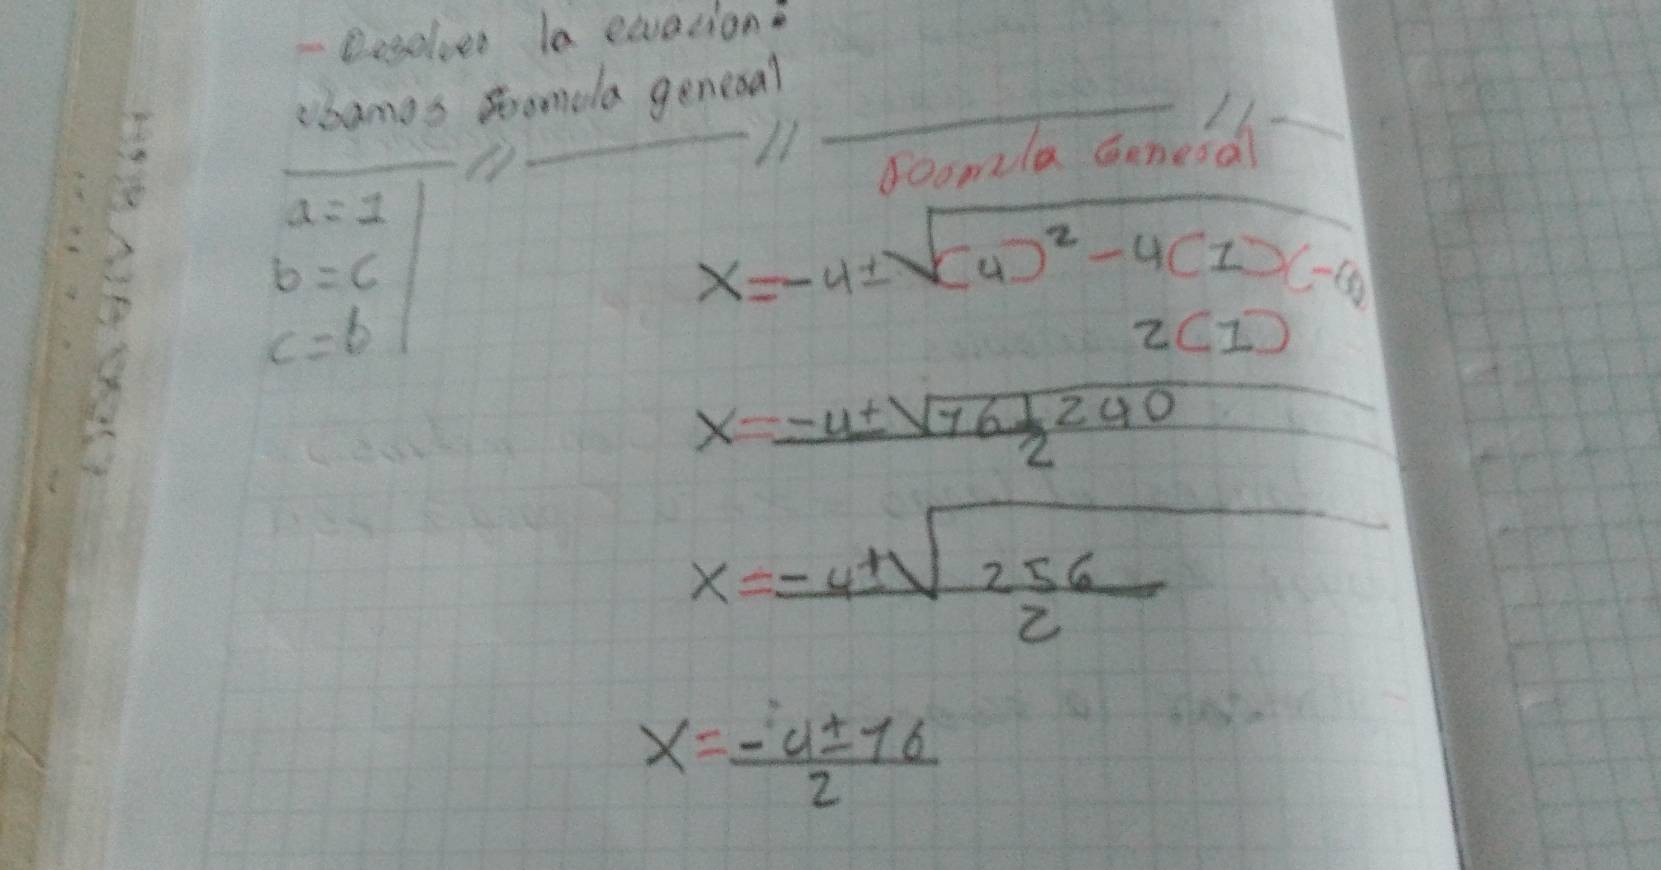 - Resolver la ecuacion:
usamos formula general
Formula General
a=1
b=c
c=b
X=-4±√(4)²-4(1)(-60)
2(1)
X=-4±√16+240
2
X=-4±√256
2
X=-4±16
2